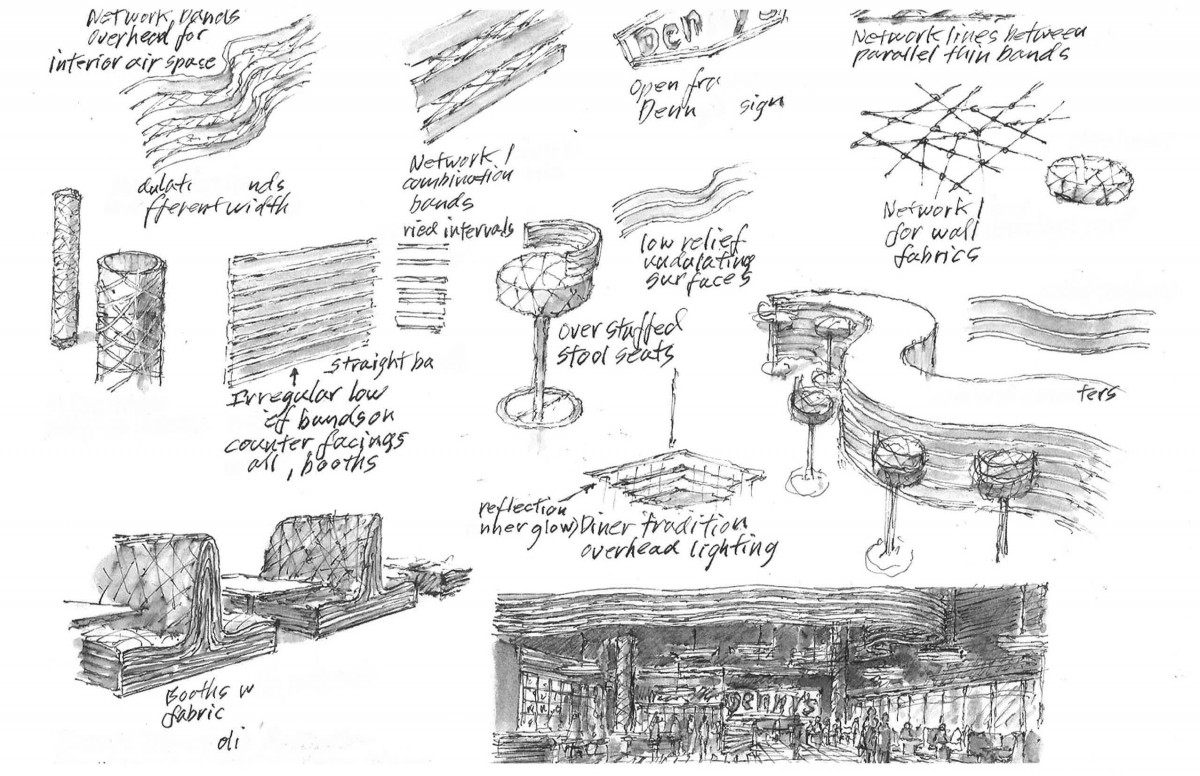 Network bands
overhead for
interior air space
Den
Open fra
Denn sign
Network lines between
parallel thin bands
Network /
combination
bands
ried intervals
dulati nds
fferent width
low relief
undulating
surfaces
Network /
for wall
fabrics
over stuffed
stool seats
straight ba
Irregular low
of bands on
counter facings
all, booths
ters
reflection
nner glow)
Diner tradition
overhead lighting
Booths w
fabric
di
Denny's